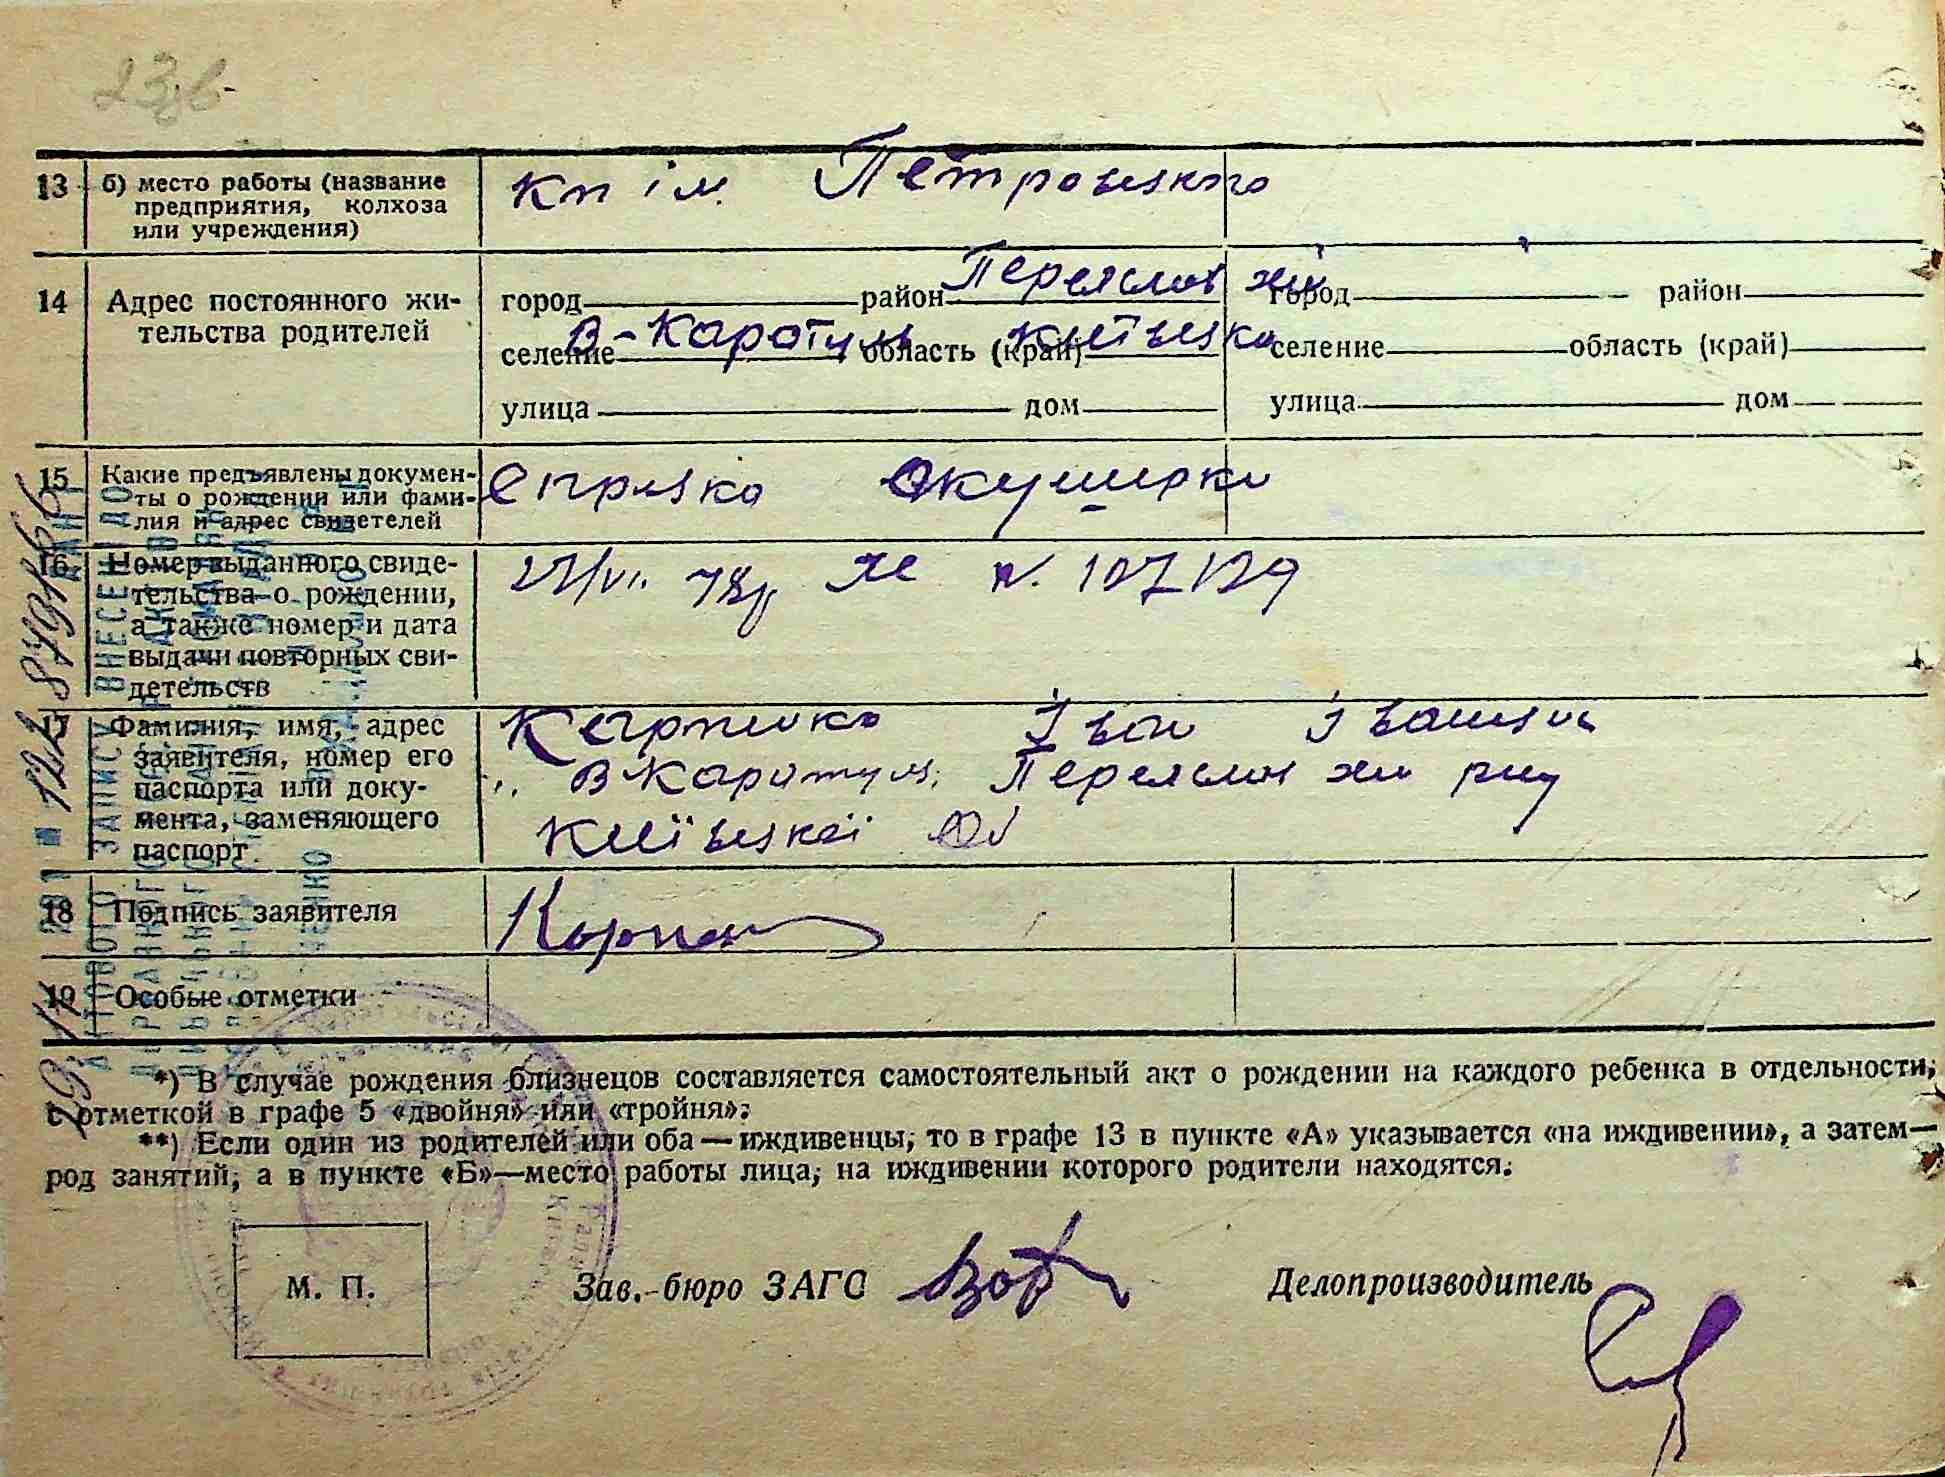 13
б) место работы (название
предприятия, колхоза
или учреждения)
Кп ім. Петровського
14
Адрес постоянного жи-
тельства родителей
город район Переяслов хм город район
селение В-Каратуль область (край) Київська селение область (край)
улица дом улица дом
15
Какие предъявлены докумен-
ты о рождении или фами-
лия и адрес свидетелей
Акушерки
16
Номер выданного свиде-
тельства о рождении,
а также номер и дата
выдачи повторных сви-
детельств
N. 107129
17
Фамилия, имя, адрес
заявителя, номер его
паспорта или доку-
мента, заменяющего
паспорт
Іван Іванович
В Каратуль Переяслов хм р-ну
Київської Об
18
Подпись заявителя
19
Особые отметки
*) В случае рождения близнецов составляется самостоятельный акт о рождении на каждого ребенка в отдельности,
с отметкой в графе 5 «двойня» или «тройня».
**) Если один из родителей или оба—иждивенцы, то в графе 13 в пункте «А» указывается «на иждивении», а затем—
род занятий, а в пункте «Б»—место работы лица, на иждивении которого родители находятся.
М. П.
Зав. бюро ЗАГС
Делопроизводитель